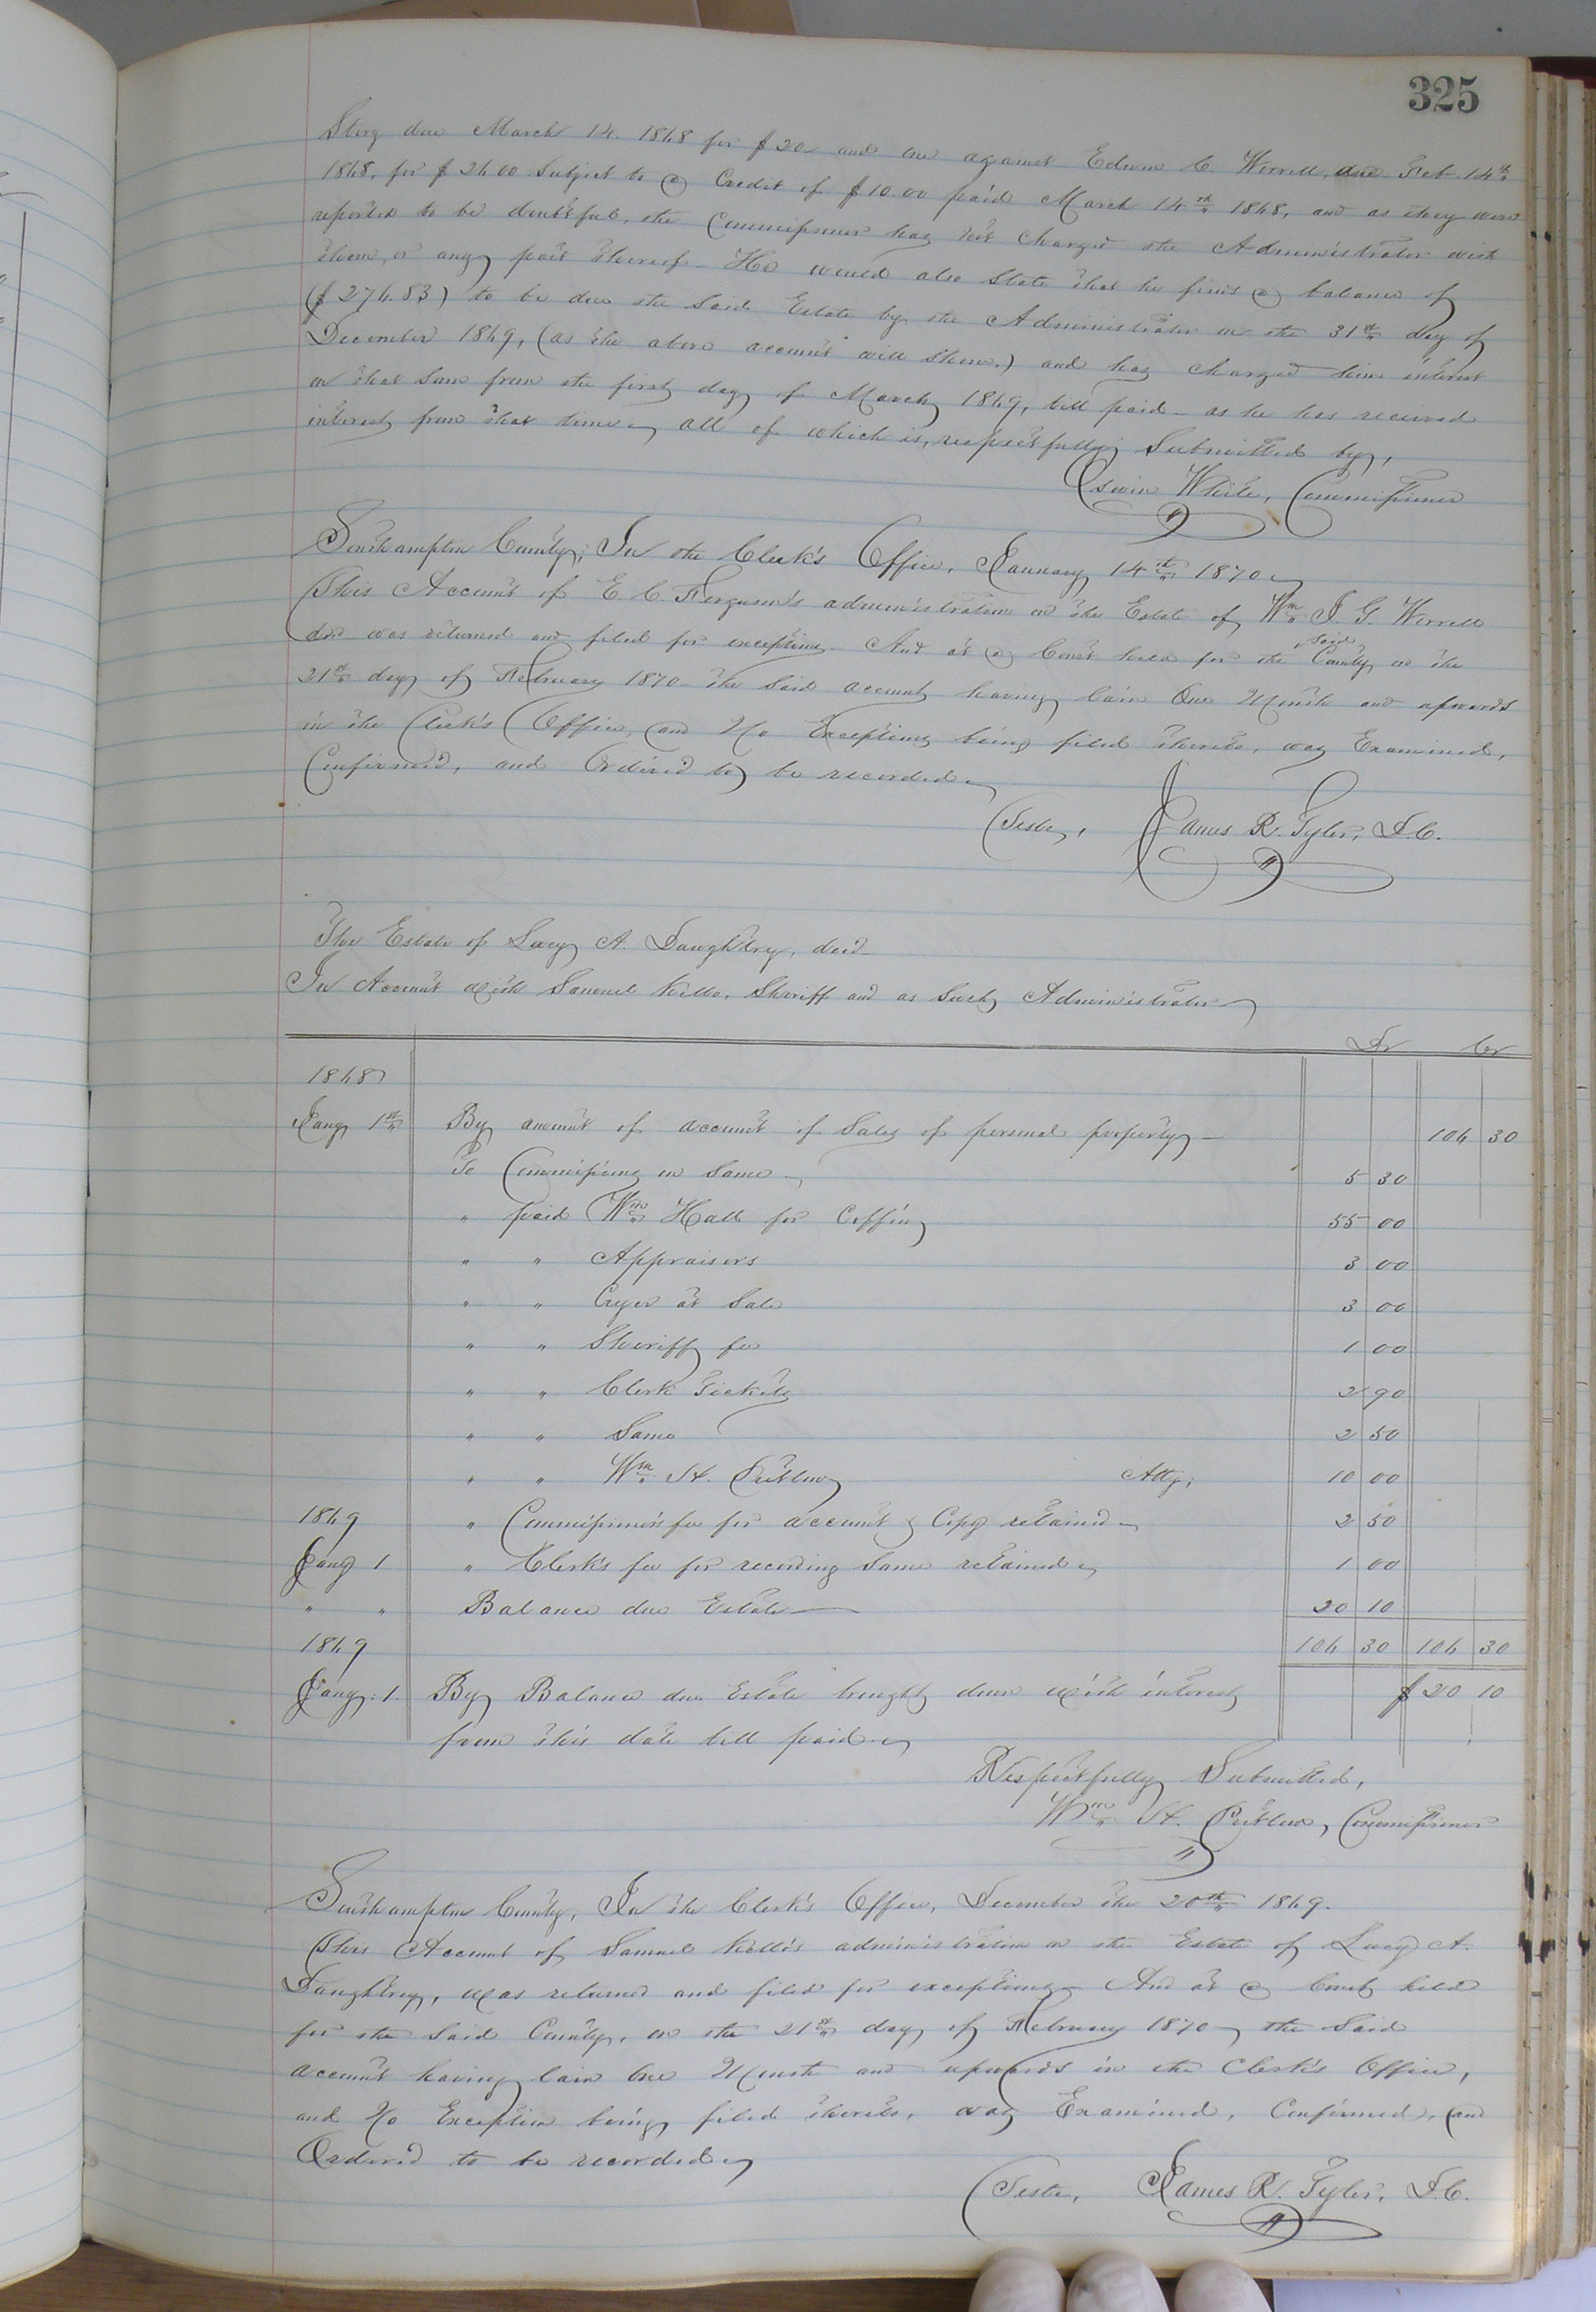 325
due March 14. 1868 for $20 and one against Edwin C Worrell, due Feb. 14th
1868, for $24.00 Subject to a Credit of $10.00 paid March 14th 1868, and as they were
reported to be doubtful, the Commissioner has not charged the Administrator with
them, or any part thereof. He would also State that he finds a balance of
($274.83) to be due the Said Estate by the Administrator on the 31st day of
December 1869, (as the above account will Show.) and has charged him interest
on that Sum from the first day of March, 1869, till paid - as he has received
interest from that time, all of which is, respectfully Submitted by,
White, Commissioner
Southampton County; In the Clerk's Office, January 14th 1870
This Account of E. C. Ferguson's administration on the Estate of Wm J. G. Worrell
dec was returned and filed for exceptions. And at a Court held for the Said County on the
21st day of February 1870 the Said account having lain One Month and upwards
in the Clerk's Office, and No Exceptions being filed thereto, was Examined,
Confirmed, and Ordered to be recorded
Teste, James R. Tyler, D.C.
The Estate of Lucy A. Daughtry, decd
In Account with Samuel Kello, Sheriff and as Such Administrator
Dr Cr
1868
Jany 1st By amount of account of Sales of personal property 106 30
To Commissions on Same 5 30
" paid Wm Hall for Coffin 55 00
" " Appraisers 3 00
" " Cryer at Sale 3 00
" " Sheriff fee 1 00
" " Clerk Tickets 2 90
" " Same 2 50
" " Wm H. Atty, 10 00
1869 " Commissioners fee for account & Copy retained 2 50
Jany 1 " Clerk's fee for recording Same retained 1 00
" " Balance due Estate 20 10
1869 106 30 106 30
Jany: 1. By Balance due Estate brought down with interest $20 10
from this date till paid
Respectfully Submitted,
Wm H. Commissioner
Southampton County, In the Clerk's Office, December the 20th 1869.
This Account of Samuel Kello's administration on the Estate of Lucy A.
Daughtrey, was returned and filed for exceptions. And at a Court held
for the Said County, on the 21st day of February 1870, the Said
account having lain One Month and upwards in the Clerk's Office,
and No Exception being filed thereto, was Examined, Confirmed, and
Ordered to be recorded
Teste, James R. Tyler, D.C.